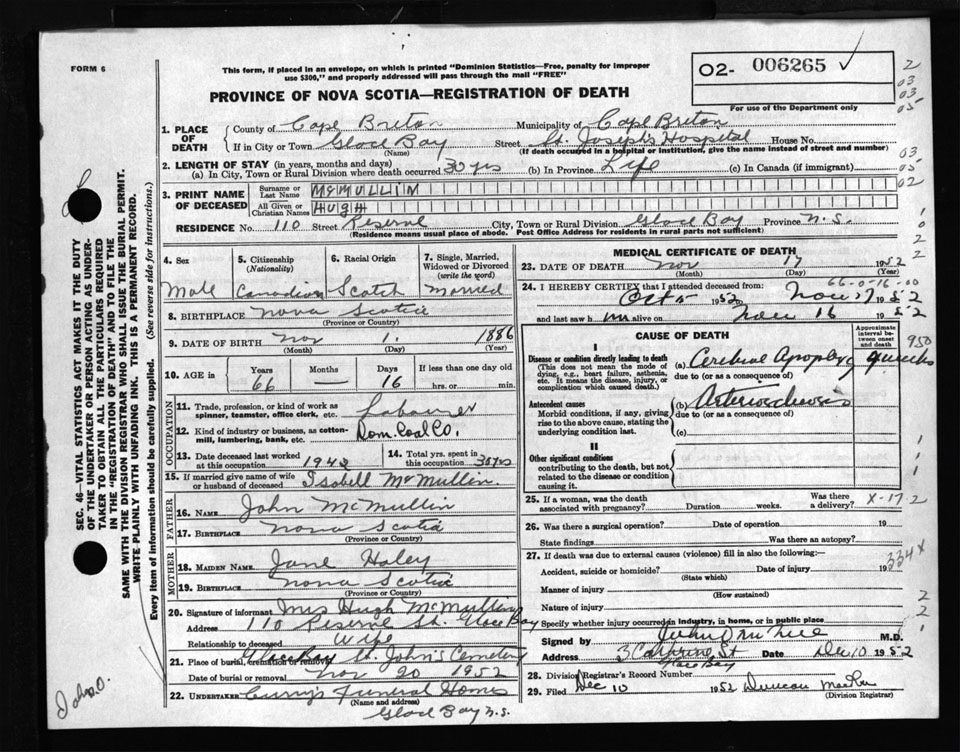 FORM 6
This form, if placed in an envelope, on which is printed "Dominion Statistics—Free, penalty for improper
use $300," and properly addressed will pass through the mail "FREE"
PROVINCE OF NOVA SCOTIA—REGISTRATION OF DEATH
O2- 006265
For use of the Department only
2
03
03
05
03
05
02
1. PLACE OF DEATH
County of Cape Breton Municipality of Cape Breton
If in City or Town Glace Bay Street St. Joseph's Hospital House No.
(Name) (If death occurred in a hospital or institution, give the name instead of street and number)
2. LENGTH OF STAY (in years, months and days)
(a) In City, Town or Rural Division where death occurred 30 yrs (b) In Province Life (c) In Canada (if immigrant)
3. PRINT NAME OF DECEASED
Surname or Last Name McMULLIN
All Given or Christian Names HUGH
RESIDENCE No. 110 Street Reserve City, Town or Rural Division Glace Bay Province N.S.
(Residence means usual place of abode. Post Office Address for residents in rural parts not sufficient)
4. Sex
Male
5. Citizenship
(Nationality)
Canadian
6. Racial Origin
Scotch
7. Single, Married, Widowed or Divorced
(write the word)
married
8. BIRTHPLACE Nova Scotia
(Province or Country)
9. DATE OF BIRTH Nov 1. 1886
(Month) (Day) (Year)
10. AGE in Years Months Days If less than one day old
66 — 16 hrs. or min.
OCCUPATION
11. Trade, profession, or kind of work as
spinner, teamster, office clerk, etc. Labourer
12. Kind of industry or business, as cotton-
mill, lumbering, bank, etc. Dom. Coal Co.
13. Date deceased last worked
at this occupation 1942
14. Total yrs. spent in
this occupation 30 yrs
15. If married give name of wife
or husband of deceased Isobell McMullin.
FATHER
16. NAME John McMullin
17. BIRTHPLACE Nova Scotia
(Province or Country)
MOTHER
18. MAIDEN NAME Jane Haley
19. BIRTHPLACE Nova Scotia
(Province or Country)
20. Signature of informant Mrs Hugh McMullin
Address 110 Reserve St. Glace Bay
Relationship to deceased Wife
21. Place of burial, cremation or removal Glace Bay St. John's Cemetery
Date of burial or removal Nov 20 1952
22. UNDERTAKER Curry's Funeral Homes
(Name and address)
Glace Bay N.S.
MEDICAL CERTIFICATE OF DEATH
23. DATE OF DEATH Nov 17 1952
(Month) (Day) (Year)
66-0-16-00
24. I HEREBY CERTIFY that I attended deceased from:
Oct 1952 to Nov 17 1952
and last saw him alive on Nov 16 1952
CAUSE OF DEATH
Approximate interval between onset and death
950
I
Disease or condition directly leading to death
(This does not mean the mode of
dying, e.g., heart failure, asthenia,
etc. It means the disease, injury, or
complication which caused death.)
(a) Cerebral Apoplexy weeks
due to (or as a consequence of)
Antecedent causes
Morbid conditions, if any, giving
rise to the above cause, stating the
underlying condition last.
(b) Arteriosclerosis
due to (or as a consequence of)
(c)
II
Other significant conditions
contributing to the death, but not
related to the disease or condition
causing it.
25. If a woman, was the death
associated with pregnancy? Duration weeks. Was there a delivery?
X-17-2
26. Was there a surgical operation? Date of operation 19
State findings Was there an autopsy?
27. If death was due to external causes (violence) fill in also the following:—
Accident, suicide or homicide? Date of injury 19
(State which)
334X
Manner of injury
(How sustained)
Nature of injury
Specify whether injury occurred in industry, in home, or in public place
Signed by M.D.
Address 3 Catherine St Date Dec 10 1952
Glace Bay
28. Division Registrar's Record Number
29. Filed Dec 10 1952 Duncan
(Division Registrar)
SEC. 46—VITAL STATISTICS ACT MAKES IT THE DUTY
OF THE UNDERTAKER OR PERSON ACTING AS UNDER-
TAKER TO OBTAIN ALL THE PARTICULARS REQUIRED
IN THE "REGISTRATION OF DEATH" AND TO FILE THE
SAME WITH THE DIVISION REGISTRAR WHO SHALL ISSUE THE BURIAL PERMIT.
WRITE PLAINLY WITH UNFADING INK. THIS IS A PERMANENT RECORD.
Every item of information should be carefully supplied. (See reverse side for instructions.)
John O.